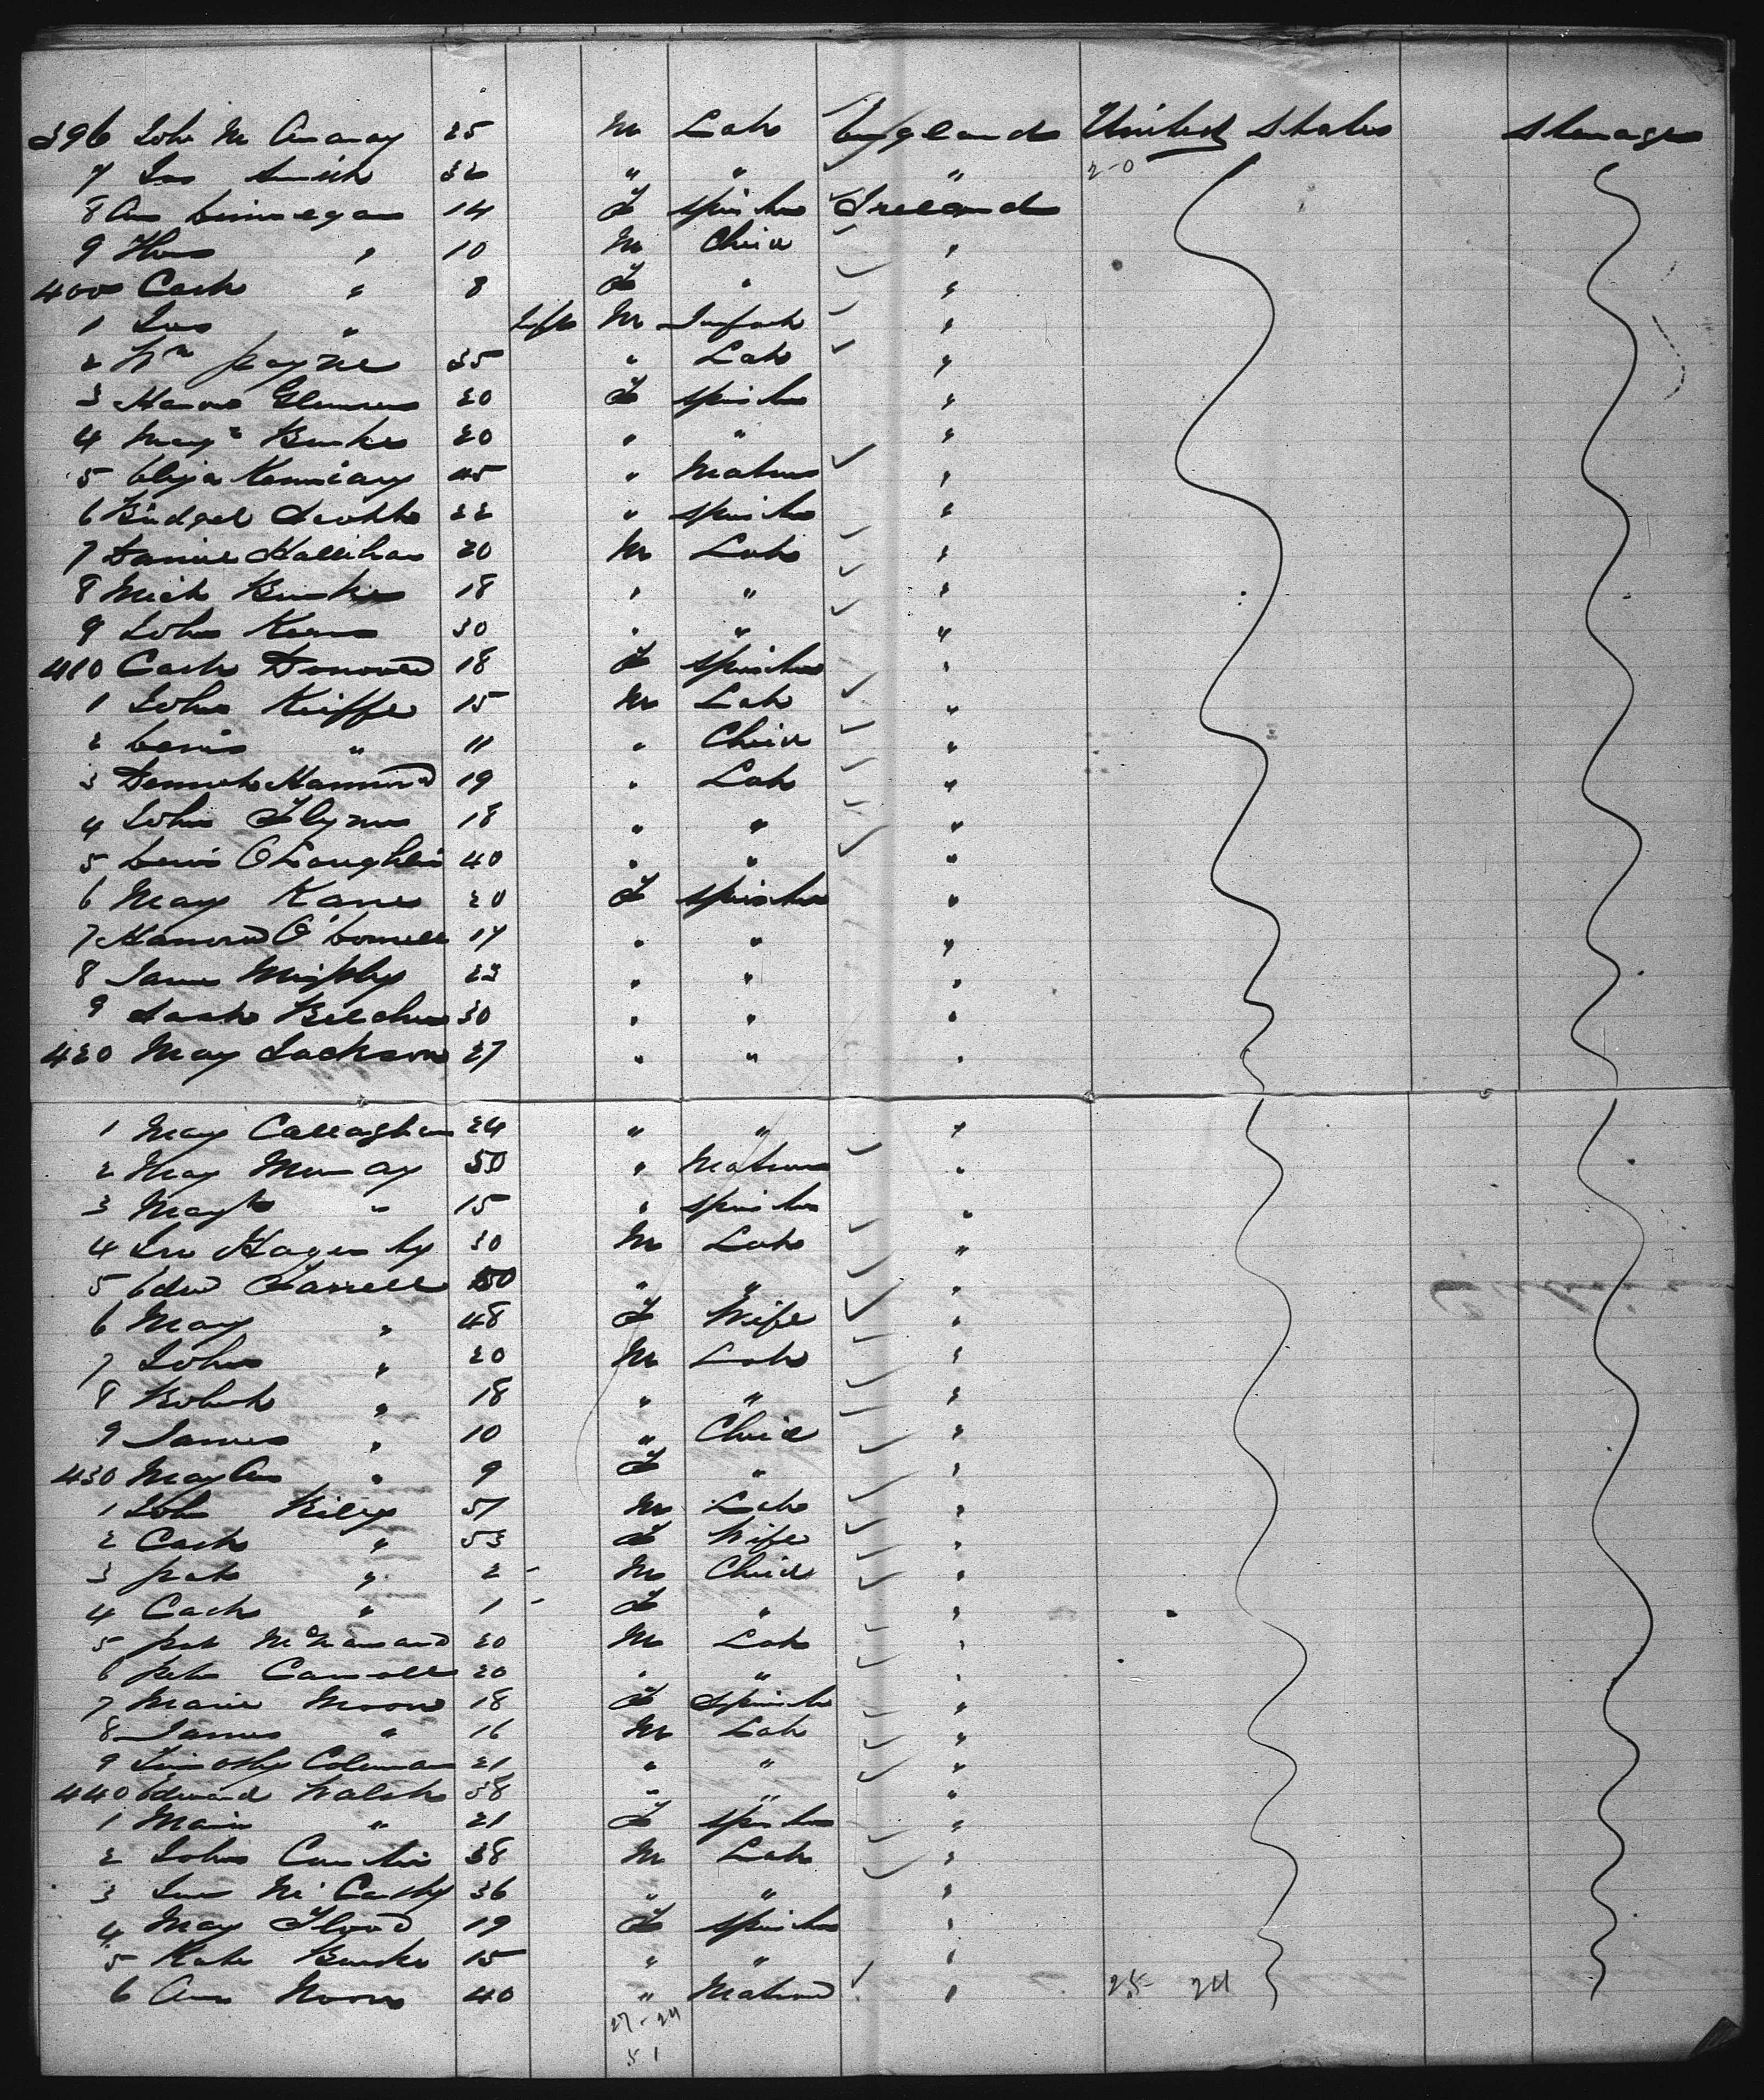 396 John Mc 25 M Lab England United States Steerage
7 Jas Smith 32 " " " 2-0
8 Ann 14 F Spinster Ireland
9 Thos " 10 M Child "
400 Cath " 8 F " "
1 Jas " Inft M Infant "
2 Wm Payne 35 " Lab "
3 20 F Spinster "
4 Margt Burke 20 " " "
5 Eliza 45 " Matron "
6 Bridget 22 " Spinster "
7 Daniel Hallihan 20 M Lab "
8 Mich Burke 18 " " "
9 John 30 " " "
410 Cath Donovan 18 F Spinster "
1 John Kieffe 15 M Lab "
2 " 11 " Child "
3 19 " Lab "
4 John Flynn 18 " " "
5 O'Loughlin 40 " " "
6 Mary Kane 20 F Spinster "
7 O'Connell 17 " " "
8 Jane Murphy 23 " " "
9 30 " " "
420 Mary Jackson 27 " " "
1 Mary Callaghan 24 " " "
2 Mary Murray 50 " Matron "
3 Margt " 15 " Spinster "
4 Hagerty 30 M Lab "
5 Edwd Farrell 50 " " "
6 Mary " 48 F Wife "
7 John " 20 M Lab "
8 Robert " 18 " " "
9 James " 10 " Child "
430 Mary Ann " 9 F " "
1 John Riley 57 M Lab "
2 Cath " 53 F Wife "
3 Pat " 2 - M Child "
4 Cath " 1 - F " "
5 Pat McNamara 20 M Lab "
6 Peter Carroll 20 " " "
7 Maria Moore 18 F Spinster "
8 James " 16 M Lab "
9 Timothy Coleman 21 " " "
440 Edward Walsh 38 " " "
1 Maria " 21 F Spinster "
2 John 38 M Lab "
3 McCarthy 36 " " "
4 Mary Flood 19 F Spinster "
5 Kate Burke 15 " " "
6 Ann 40 " Matron " 25 24
27-24
51